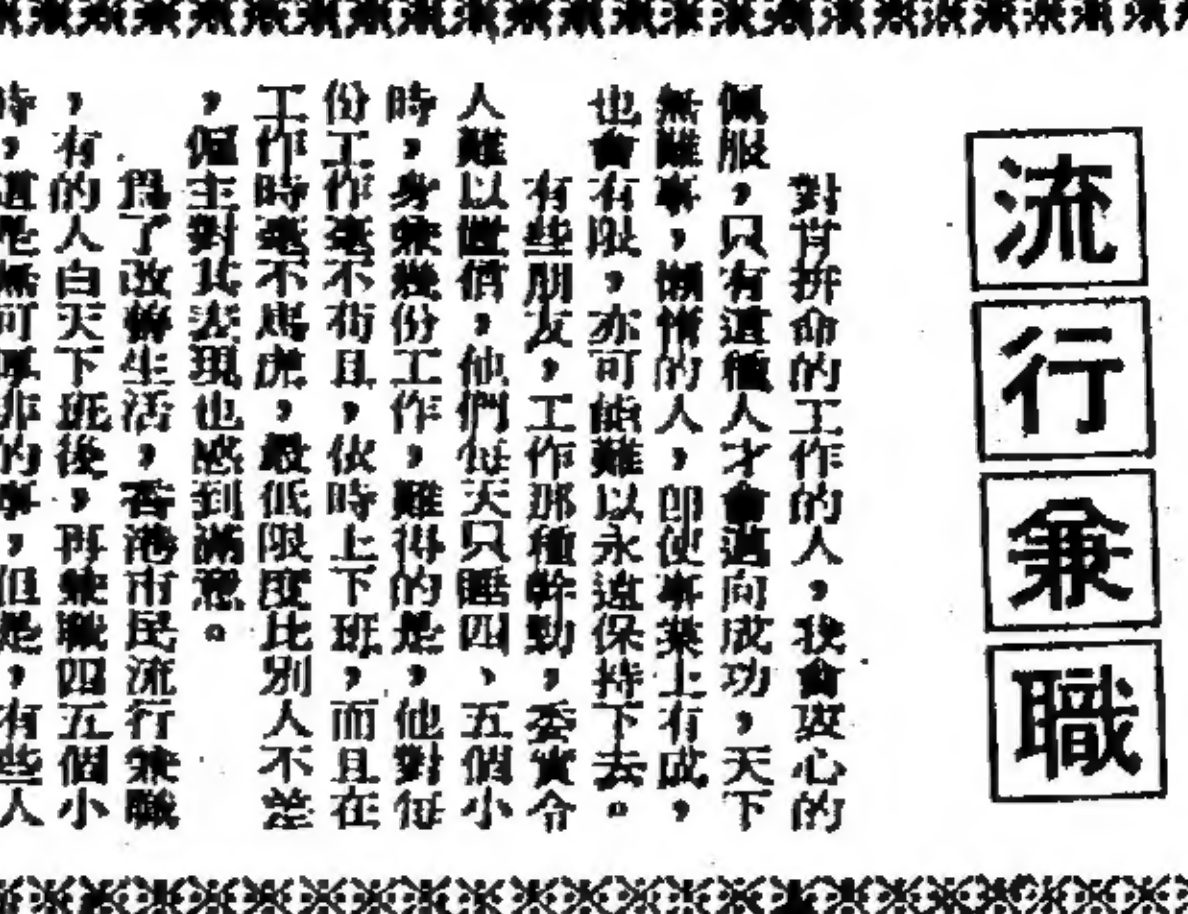 流行兼職
對肯拚命的工作的人，我會衷心的
佩服，只有這種人才會邁向成功，天下
無難事，懶惰的人，即使事業上有成，
也會有限，亦可能難以永遠保持下去。
有些朋友，工作那種幹勁，委實令
人難以置信，他們每天只睡四、五個小
時，身兼幾份工作，難得的是，他對每
份工作毫不苟且，依時上下班，而且在
工作時毫不馬虎，最低限度比別人不差
，僱主對其表現也感到滿意。
爲了改善生活，香港市民流行兼職
，有的人白天下班後，再兼職四五個小
時，這是無可厚非的事，但是，有些人